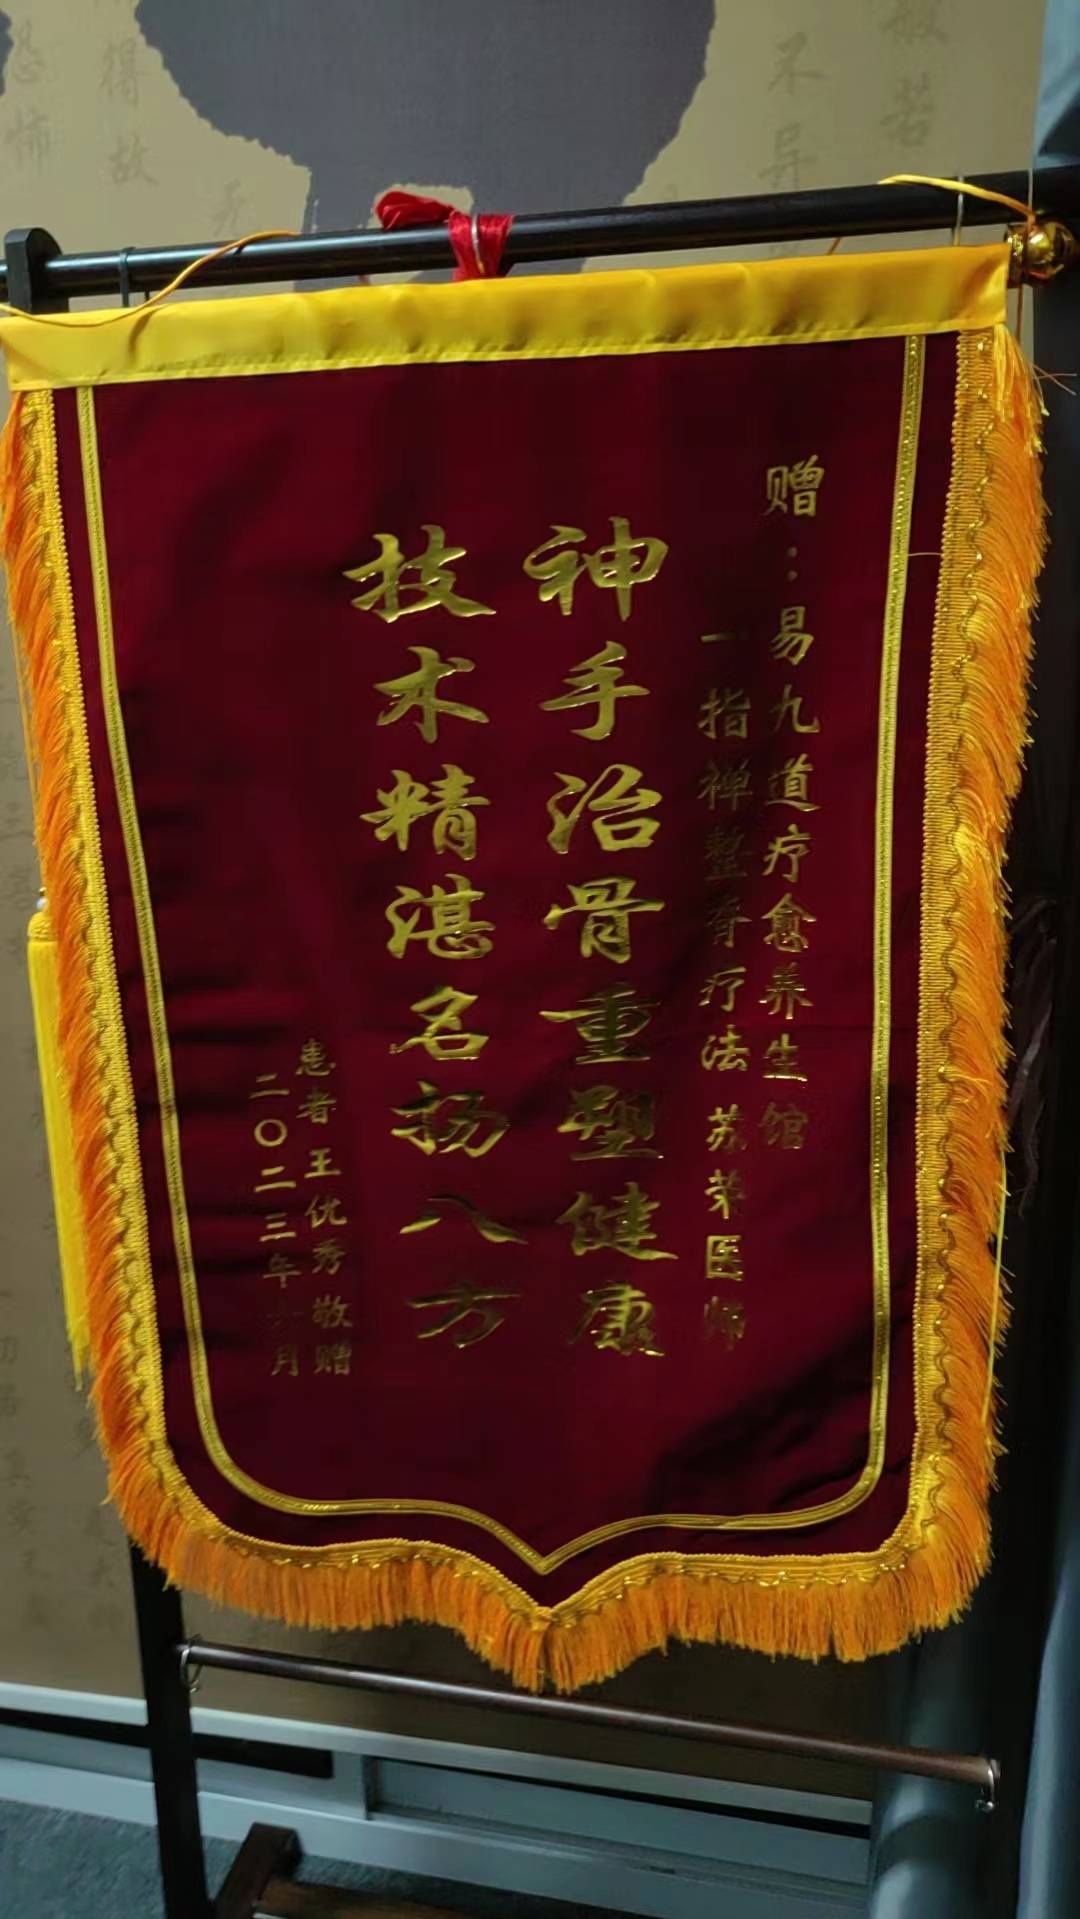 赠：易九道疗愈养生馆
一指禅整脊疗法 苏荣医师
神手治骨重塑健康
技术精湛名扬八方
患者 王优秀 敬赠
二〇二三年六月
恐怖
得故
不异
般若